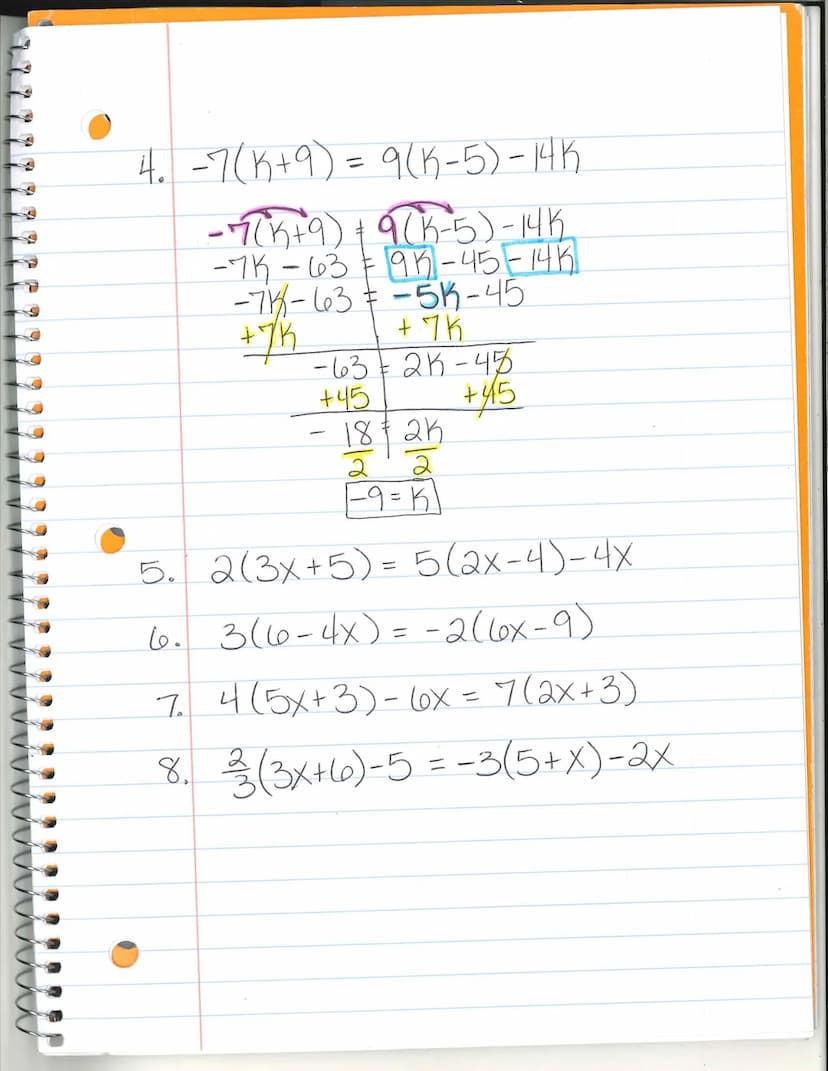 4. -7(k+9) = 9(k-5) - 14k
-7(k+9) = 9(k-5) - 14k
-7k - 63 = 9k - 45 - 14k
-7k - 63 = -5k - 45
+7k +7k
-63 = 2k - 45
+45 +45
-18 = 2k
2 2
-9 = k
5. 2(3x+5) = 5(2x-4) - 4x
6. 3(6-4x) = -2(6x-9)
7. 4(5x+3) - 6x = 7(2x+3)
8. 2/3(3x+6) - 5 = -3(5+x) - 2x